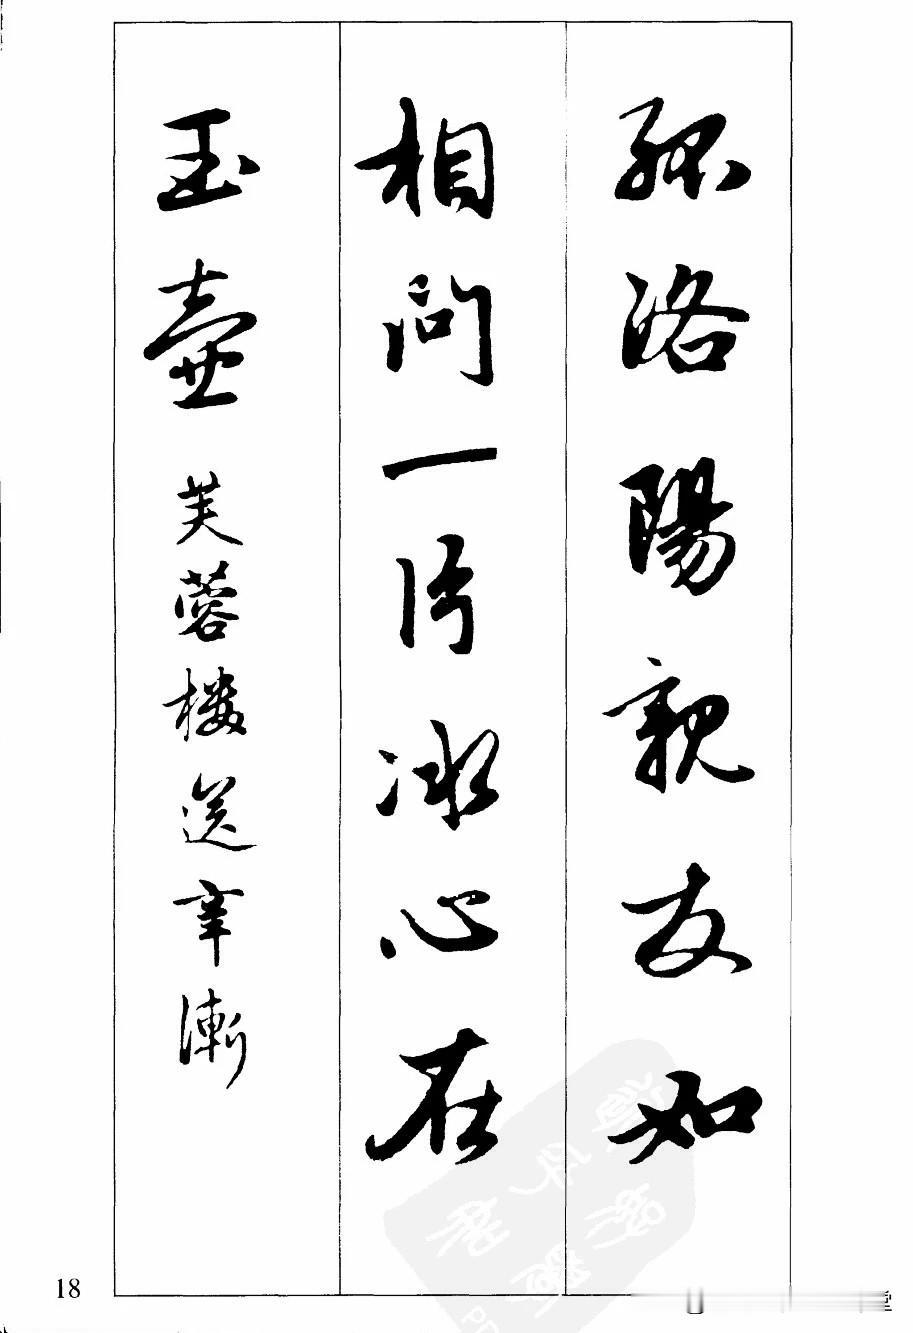 孤洛陽親友如
相問一片冰心在
玉壺 芙蓉樓送辛漸
18